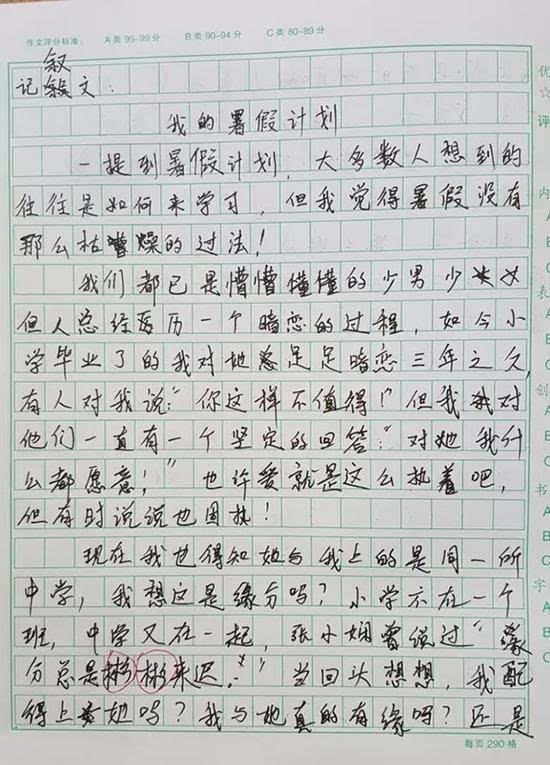 作文评分标准： A类 95-99分 B类 90-94分 C类 80-89分
叙
记文：
我的暑假计划
一提到暑假计划，大多数人想到的
往往是如何来学习，但我觉得暑假没有
那么枯燥的过法！
我们都已是懵懵懂懂的少男少女
但人总经历一个暗恋的过程，如今小
学毕业了的我对她足足暗恋三年之久，
有人对我说：“你这样不值得！”但我对
他们一直有一个坚定的回答：“对她我什
么都愿意！”也许爱就是这么执着吧，
但有时说说也固执！
现在我也得知她与我上的是同一所
中学，我想这是缘分吗？小学不在一个
班，中学又在一起，张小娴曾说过“缘
分总是来迟。”当回头想想，我配
得上她吗？我与她真的有缘吗？还是
每页 290 格
优
☆
评
内
A
B
C
表
A
B
C
创
A
B
C
书
A
B
C
字
A
B
C